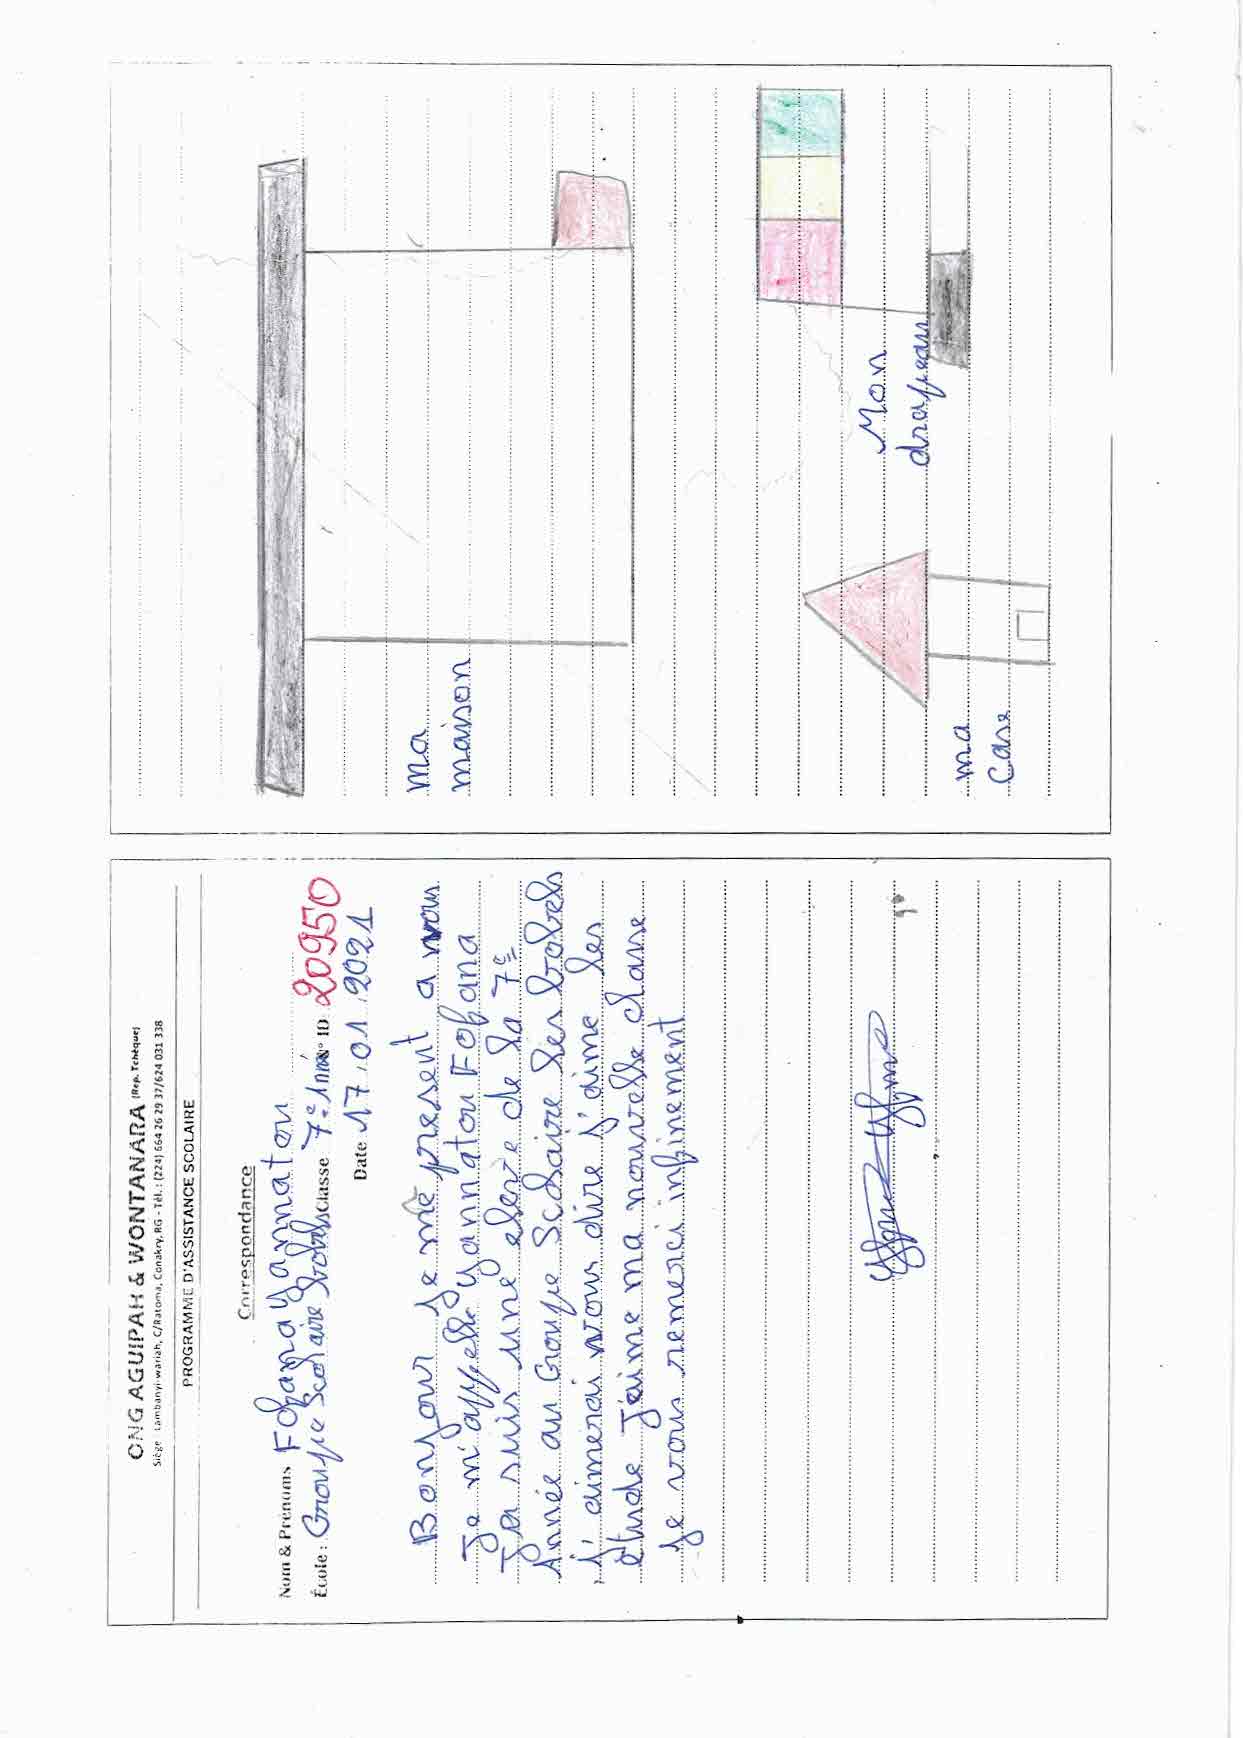 ONG AGUIPAH & WONTANARA (Rep. Tchèque)
Siège : Lambanyi-wariah, C/Ratoma, Conakry, RG - Tél. : (224) 664 26 29 37/624 031 338
PROGRAMME D'ASSISTANCE SCOLAIRE
Correspondance
Nom & Prénoms Fofana Yannatou
École : Groupe Scolaire Classe 7e Année N° ID: 20950
Date 17.01.2021
Bonjour Je me present a vous
Je m'appelle Yannatou Fofana
Je suis une eleve de la 7e
Année au Groupe Scolaire les
J'aimerai vous dire J'aime les
étude J'aime ma nouvelle classe
Je vous remerci infinement
ma
maison
Mon
drapeau
ma
Case